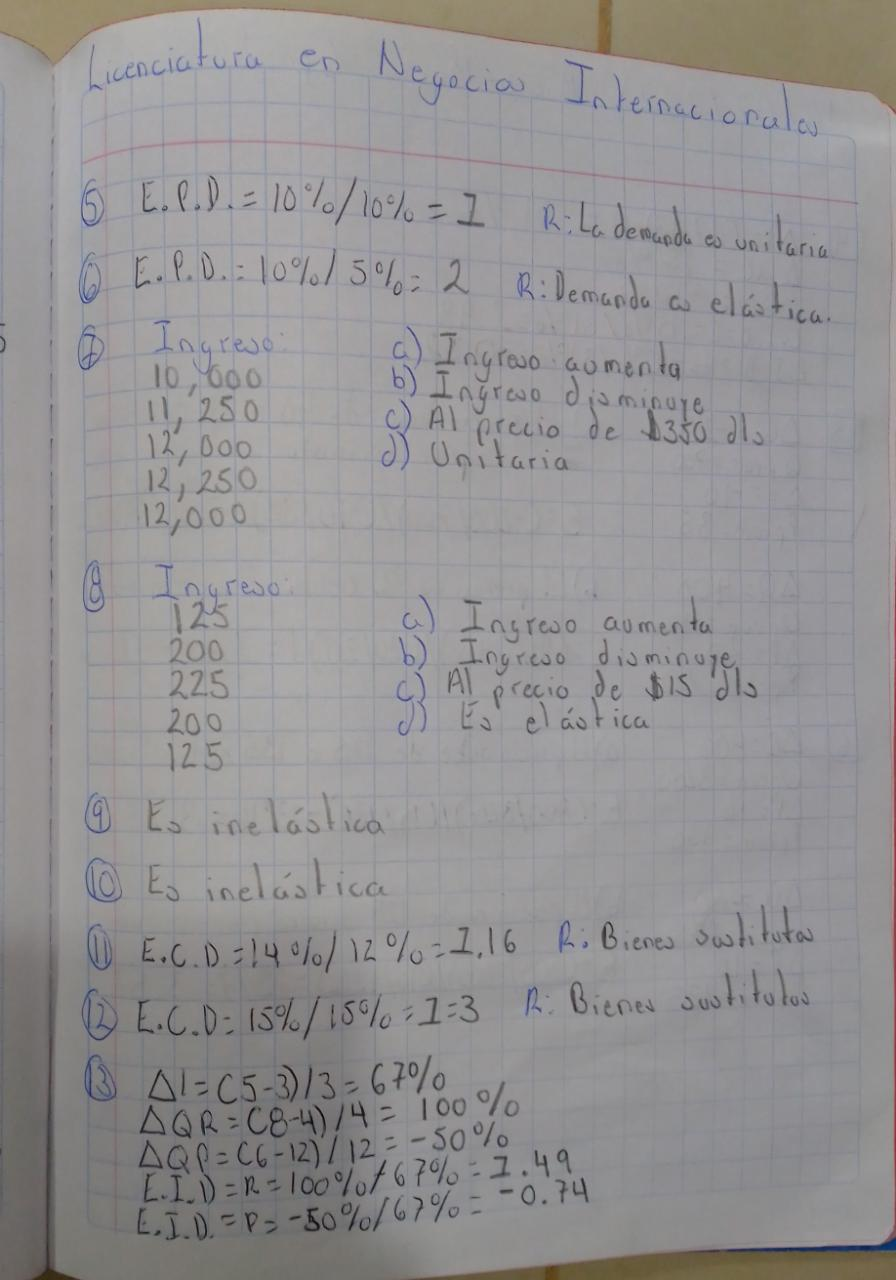 Licenciatura en Negocios Internacionales
5 E.P.D.= 10%/10% = 1 R: La demanda es unitaria
6 E.P.D.= 10%/5%= 2 R: Demanda es elástica.
7 Ingreso: a) Ingreso aumenta
10,000 b) Ingreso disminuye
11,250 c) Al precio de $350 dls
12,000 d) Unitaria
12,250
12,000
8 Ingreso:
125 a) Ingreso aumenta
200 b) Ingreso disminuye
225 c) Al precio de $15 dls
200 d) Es elástica
125
9 Es inelástica
10 Es inelástica
11 E.C.D=14%/12%=1.16 R: Bienes sustitutos
12 E.C.D=15%/15%=1=3 R: Bienes sustitutos
13 ΔI=(5-3)/3=67%
ΔQR=(8-4)/4= 100%
ΔQP=(6-12)/12=-50%
E.I.D=R=100%/67%=1.49
E.I.D.=P=-50%/67%=-0.74